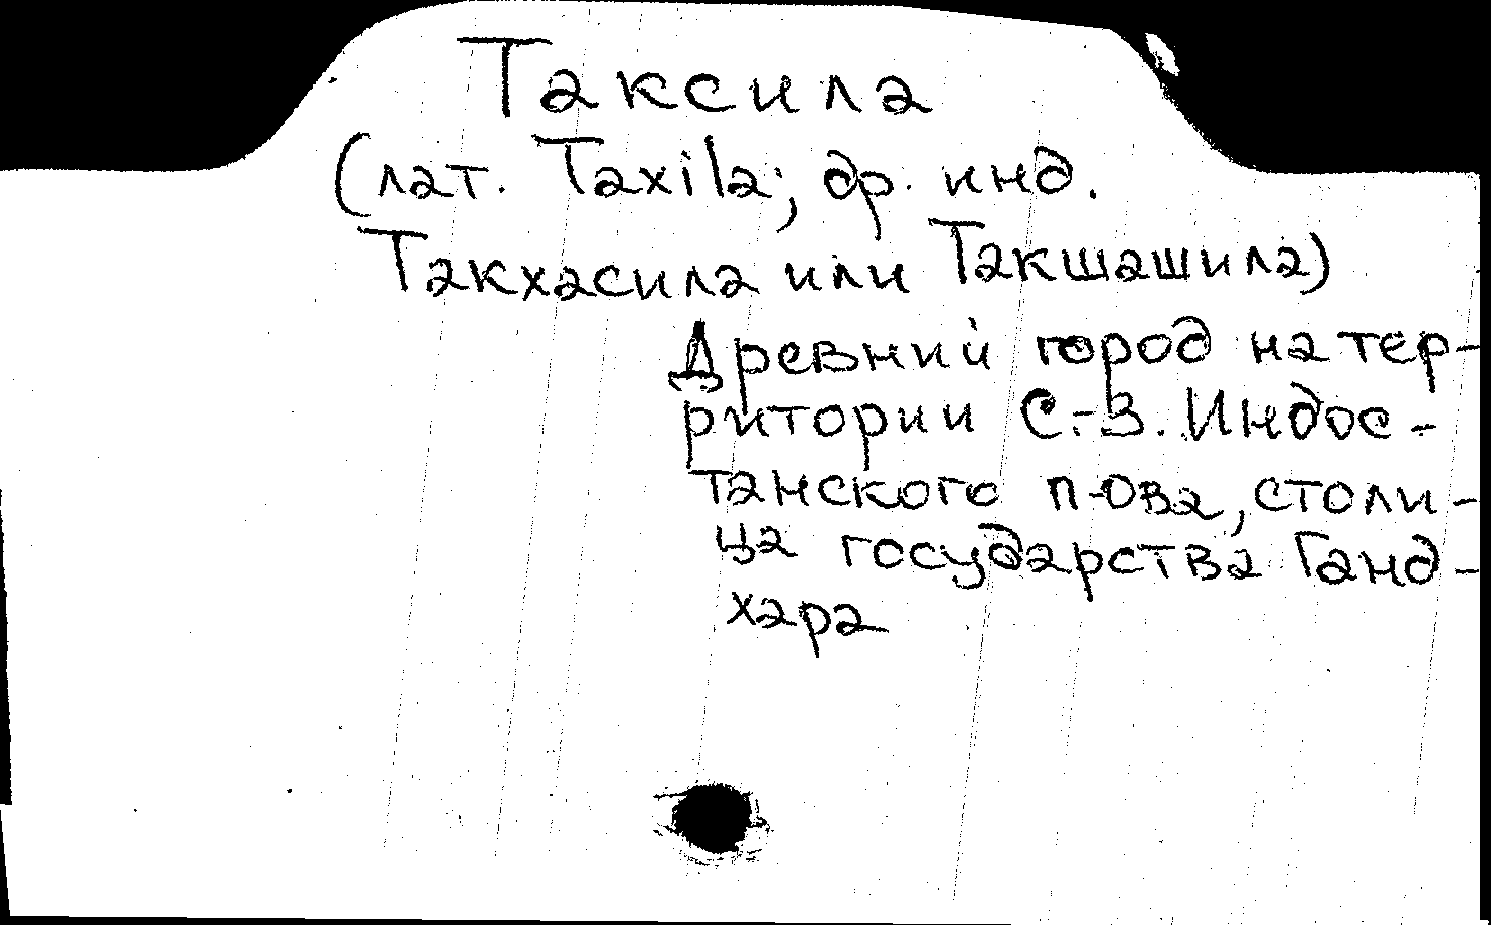 Таксила
(лат. Taxila; др. инд.
Такхасила или Такшашила)
Древний город на тер-
ритории С.-З. Индос-
танского п-ова, столи-
ца государства Ганд-
хара